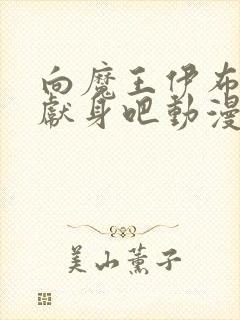 向魔王伊布
獻身吧動漫
美山薰子